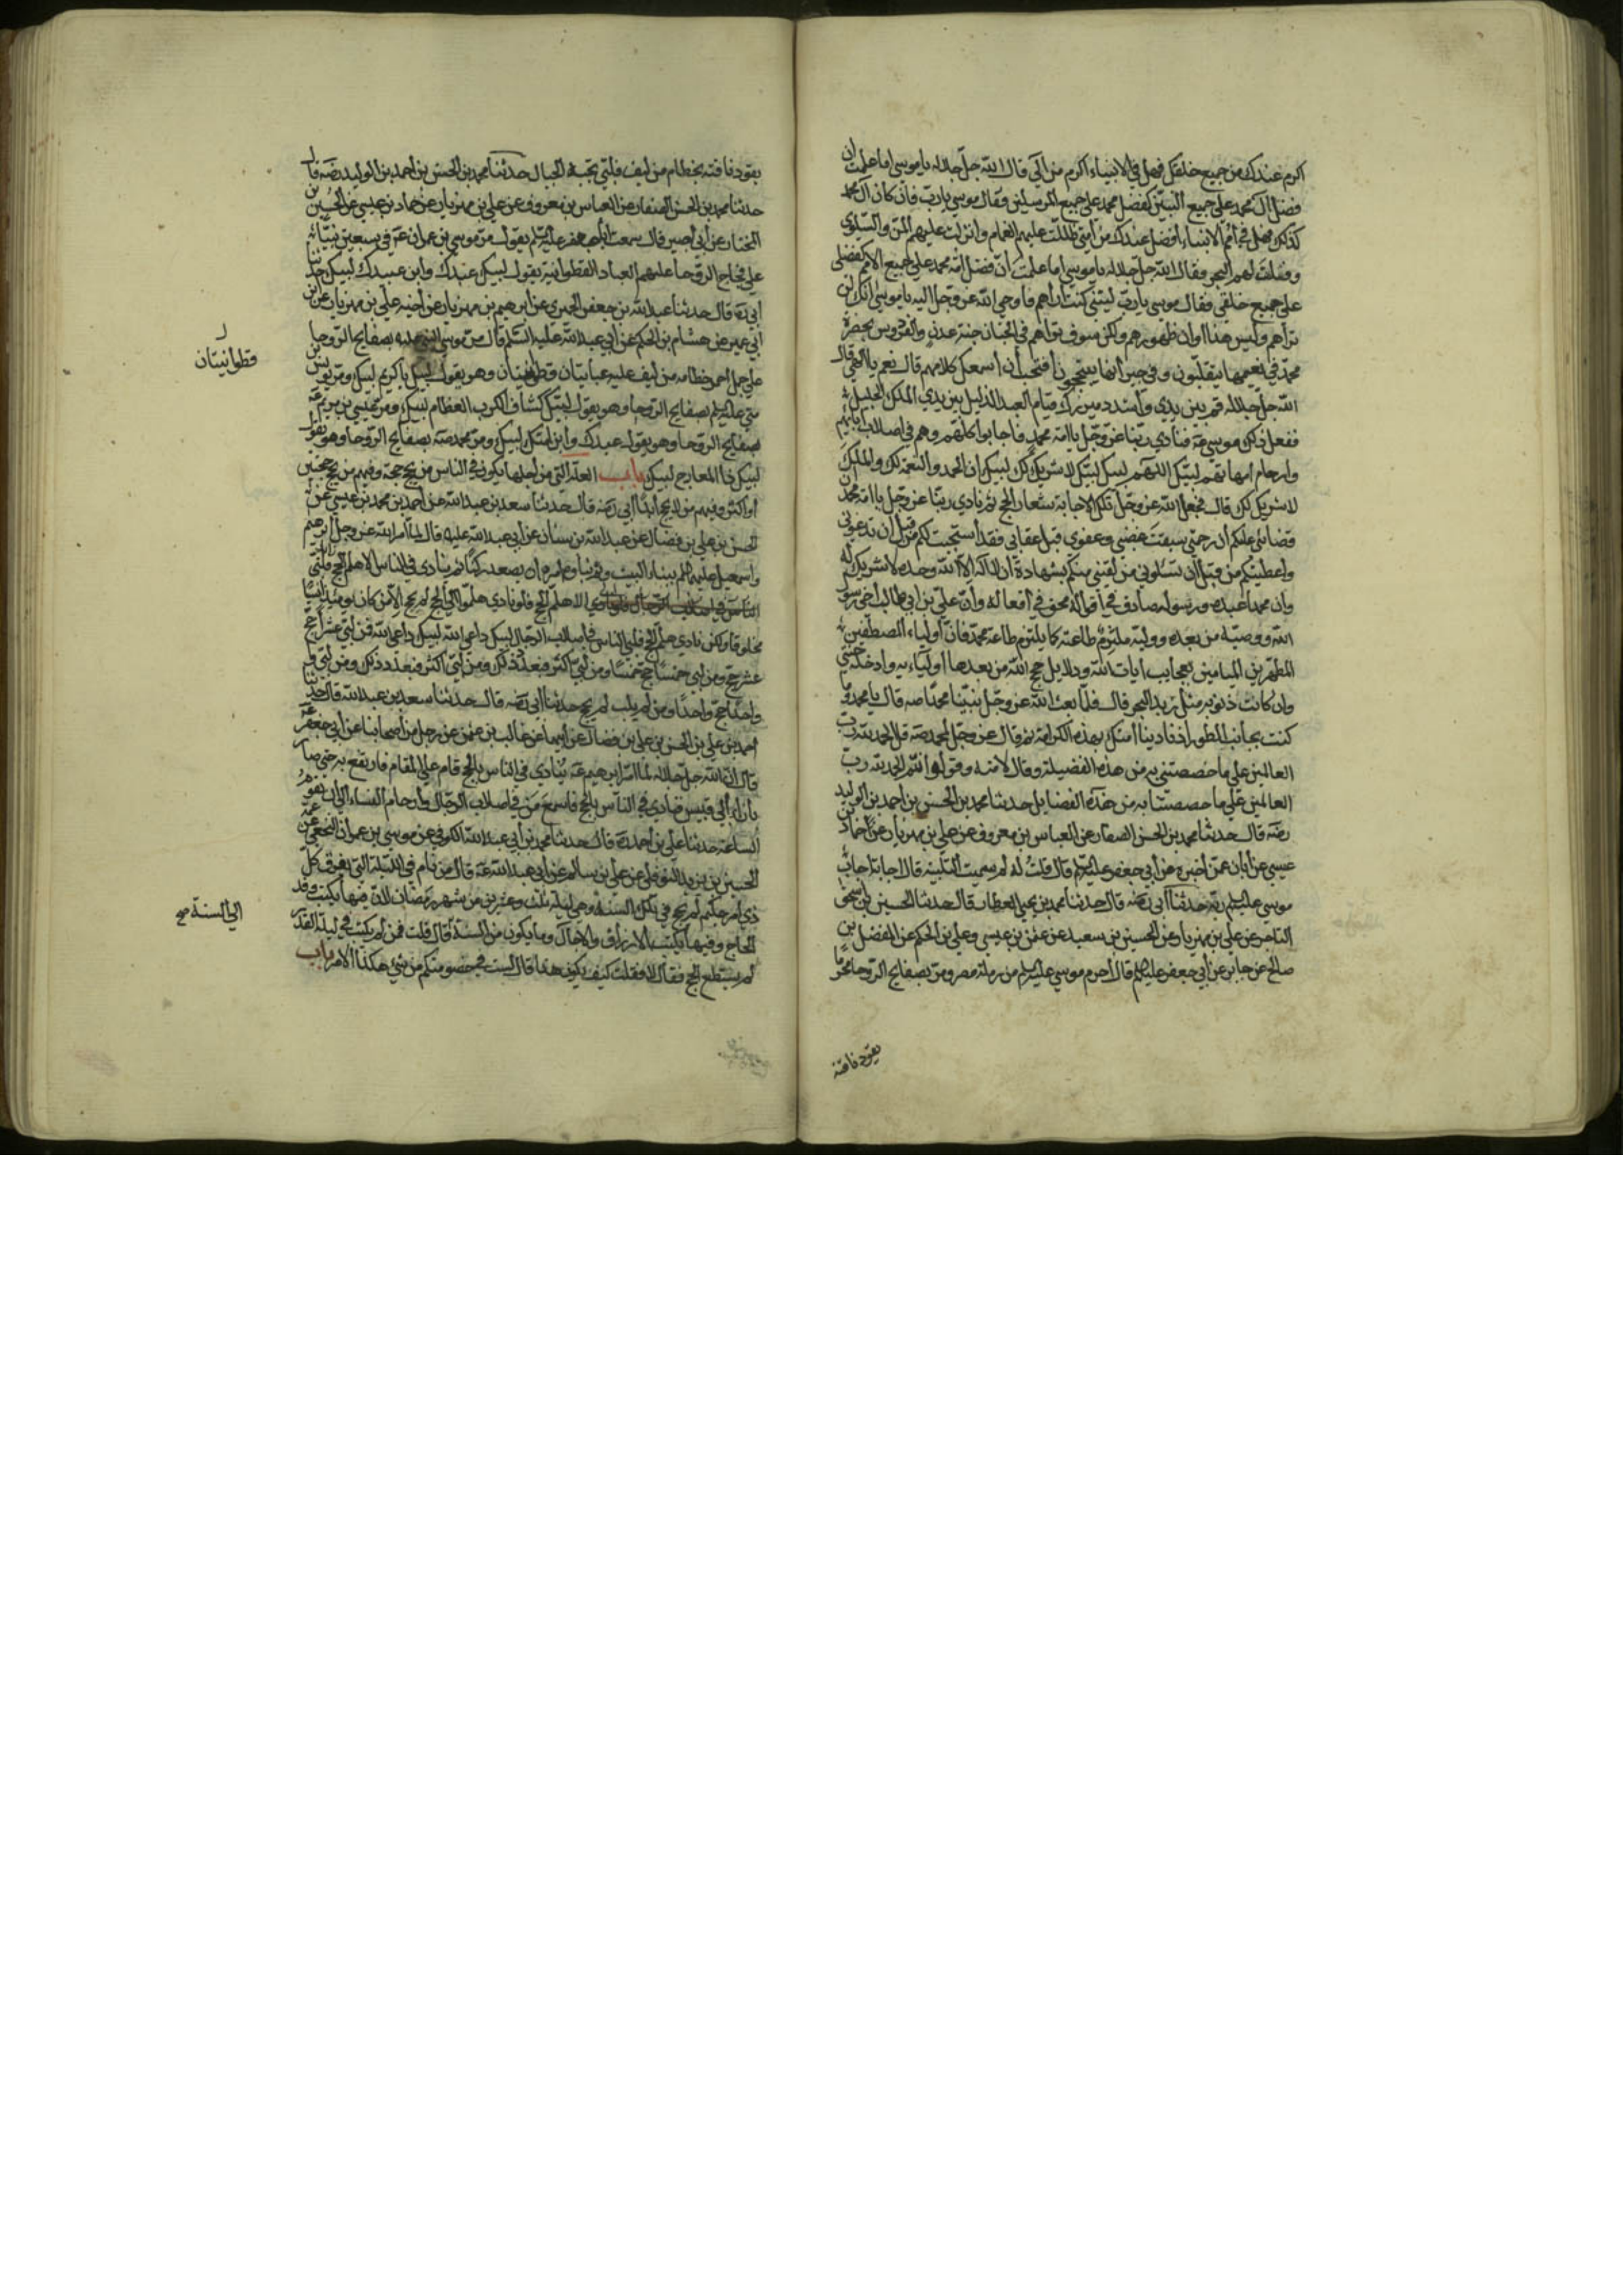 اكرم عندك من جميع خلقك فهل في الانبياء اكرم من آلي قال الله جل جلاله يا موسى اما علمت ان
فضل آل محمد على جميع النبيين كفضل محمد على جميع المرسلين فقال موسى يا رب فان كان آل محمد
كذلك فهل في امم الانبياء افضل عندك من امتي ظللت عليهم الغمام وانزلت عليهم المن والسلوى
وفلقت لهم البحر فقال الله جل جلاله يا موسى اما علمت ان فضل امة محمد على جميع الامم كفضلي
على جميع خلقي فقال موسى يا رب ليتني كنت اراهم فاوحى الله عز وجل اليه يا موسى انك لن
تراهم وليس هذا اوان ظهورهم ولكن سوف تراهم في الجنان جنة عدن والفردوس بحضرة
محمد في نعيمها يتقلبون وفي خيراتها يتبجحون افتحب ان اسمعك كلامهم قال نعم يا الهي قال
الله جل جلاله قم بين يدي واشدد ميزرك قيام العبد الذليل بين يدي الملك الجليل
ففعل ذلك موسى عه فنادى ربنا عز وجل يا امة محمد فاجابوا كلهم وهم في اصلاب آبائهم
وارحام امهاتهم لبيك اللهم لبيك لبيك لا شريك لك لبيك ان الحمد والنعمة لك والملك
لا شريك لك قال فجعل الله عز وجل تلك الاجابة شعار الحج ثم نادى ربنا عز وجل يا امة محمد ان
قضائي عليكم ان رحمتي سبقت غضبي وعفوي قبل عقابي فقد استجبت لكم من قبل ان تدعوني
واعطيتكم من قبل ان تسئلوني من لقيني منكم بشهادة ان لا اله الا الله وحده لا شريك له
وان محمدا عبده ورسوله صادق في اقواله محق في افعاله وان علي بن ابي طالب اخي رسول
الله ووصيه من بعده ووليه ملتزم طاعته كما يلتزم طاعة محمد فان اولياء المصطفين
المطهرين الميامين بعجايب ايات الله ودلايل حجج الله من بعدهما اولياءه وادخله جنتي
وان كانت ذنوبه مثل زبد البحر قال فلما بعث الله عز وجل نبينا محمدا صه قال يا محمد وما
كنت بجانب الطور اذ نادينا امتك بهذه الكرامة ثم قال عز وجل لمحمد صه قل الحمد لله رب
العالمين على ما خصصتني به من هذه الفضيلة وقال لامته وقولوا انتم الحمد لله رب
العالمين على ما خصصتنا به من هذه الفضايل حدثنا محمد بن الحسن بن احمد بن الوليد
رضه قال حدثنا محمد بن الحسن الصفار عن العباس بن معروف عن علي بن مهزيار عن حماد بن
عيسى عن ابان عمن اخبره عن ابي جعفر عليه السلم قال قلت له لم سميت التلبية قال اجابة اجاب
موسى عليه السلم ربه حدثنا ابي رضه قال حدثنا محمد بن يحيى العطار قال حدثنا الحسين بن اسحق
التاجر عن علي بن مهزيار عن الحسين بن سعيد عن عثمن بن عيسى وعلي بن الحكم عن المفضل بن
صالح عن جابر عن ابي جعفر عليه السلم قال احرم موسى عليه السلم من رملة مصر ومر بصفايح الروحا محرما
يقود ناقته
يقود ناقته بخطام من ليف فلبى تجيبه الجبال حدثنا محمد بن الحسن بن احمد بن الوليد رضه قال
حدثنا محمد بن الحسن الصفار عن العباس بن معروف عن علي بن مهزيار عن حماد بن عيسى عن الحسين بن
المختار عن ابي بصير قال سمعت ابا جعفر عليه السلم يقول مر موسى بن عمران عه في سبعين نبيا
على فجاج الروحا عليهم العباء القطوانية يقول لبيك عبدك وابن عبيدك لبيك حدثنا
ابي ره قال حدثنا عبد الله بن جعفر الحميري عن ابرهيم بن مهزيار عن اخيه علي بن مهزيار عن ابن
ابي عمير عن هشام بن الحكم عن ابي عبد الله عليه السلم قال مر موسى النبي عليه بصفايح الروحا
على جمل احمر خطامه من ليف عليه عبايتان قطوانيتان وهو يقول لبيك يا كريم لبيك ومر يونس بن
متى عليه السلم بصفايح الروحا وهو يقول لبيك كشاف الكرب العظام لبيك ومر عيسى بن مريم عه
بصفايح الروحا وهو يقول عبدك وابن امتك لبيك ومر محمد صه بصفايح الروحا وهو يقول
لبيك ذا المعارج لبيك باب العلة التي من اجلها يكون في الناس من يحج حجة وفيهم من يحج حجتين
او اكثر وفيهم من لا يحج ابدا ابي رضه قال حدثنا سعد بن عبد الله عن احمد بن محمد بن عيسى عن
الحسن بن علي بن فضال عن عبد الله بن سنان عن ابي عبد الله عليه قال لما امر الله عز وجل ابرهيم
واسمعيل عليهما السلم ببناء البيت وتم بناؤه امره ان يصعد ركنا ثم ينادي في الناس الا هلم الحج فلبى
الناس في اصلاب الرجال الا هلم الحج فلو نادى هلموا الى الحج لم يحج الا من كان يومئذ انسيا
مخلوقا ولكن نادى هلم الحج فلبى الناس في اصلاب الرجال لبيك داعي الله لبيك داعي الله فمن لبى عشرا حج
عشر حج ومن لبى خمسا حج خمسا ومن لبى اكثر فبعدد ذلك ومن لبى
واحدا حج واحدا ومن لم يلب لم يحج حدثنا ابي رضه قال حدثنا سعد بن عبد الله قال حدثنا
احمد بن علي بن الحسن بن علي بن فضال عن ابيهما عن غالب بن عثمن عن رجل من اصحابنا عن ابي جعفر عه
قال ان الله جل جلاله لما امر ابرهيم عه ينادي في الناس بالحج قام على المقام فارتفع به حتى صار
بازاء ابي قبيس فنادى في الناس بالحج فاسمع من في اصلاب الرجال وارحام النساء الى ان تقوم
الساعة حدثنا علي بن احمد ره قال حدثنا محمد بن ابي عبد الله الكوفي عن موسى بن عمران النخعي عن عمه
الحسين بن يزيد النوفلي عن علي بن سالم عن ابي عبد الله عه قال من نام في الليلة التي يفرق كل
ذي امر حكيم لم يحج في تلك السنة وهي ليلة ثلث وعشرين من شهر رمضان لان فيها يكتب وفد
الحاج وفيها يكتب الارزاق والاجال وما يكون من السنة قال قلت فمن لم يكتب في ليلة القدر
لم يستطع الحج فقال لا فقلت كيف يكون هذا قال لست في خصومتكم من شيء هكذا الامر باب
قطوانيتان
الى السنة صح